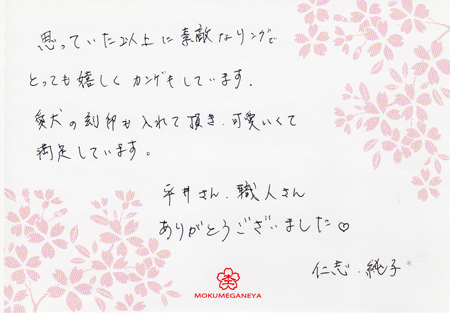 思っていた以上に素敵なリングで
とっても嬉しくカンゲキしています。
愛犬の刻印も入れて頂き、可愛いくて
満足しています。
平井さん、職人さん
ありがとうございました♡
仁志・純子
MOKUMEGANEYA